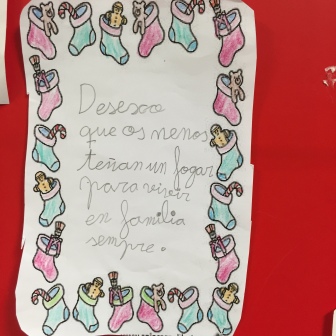 Desexoo
que os nenos
teñan un fogar
para vivir
en familia
sempre.